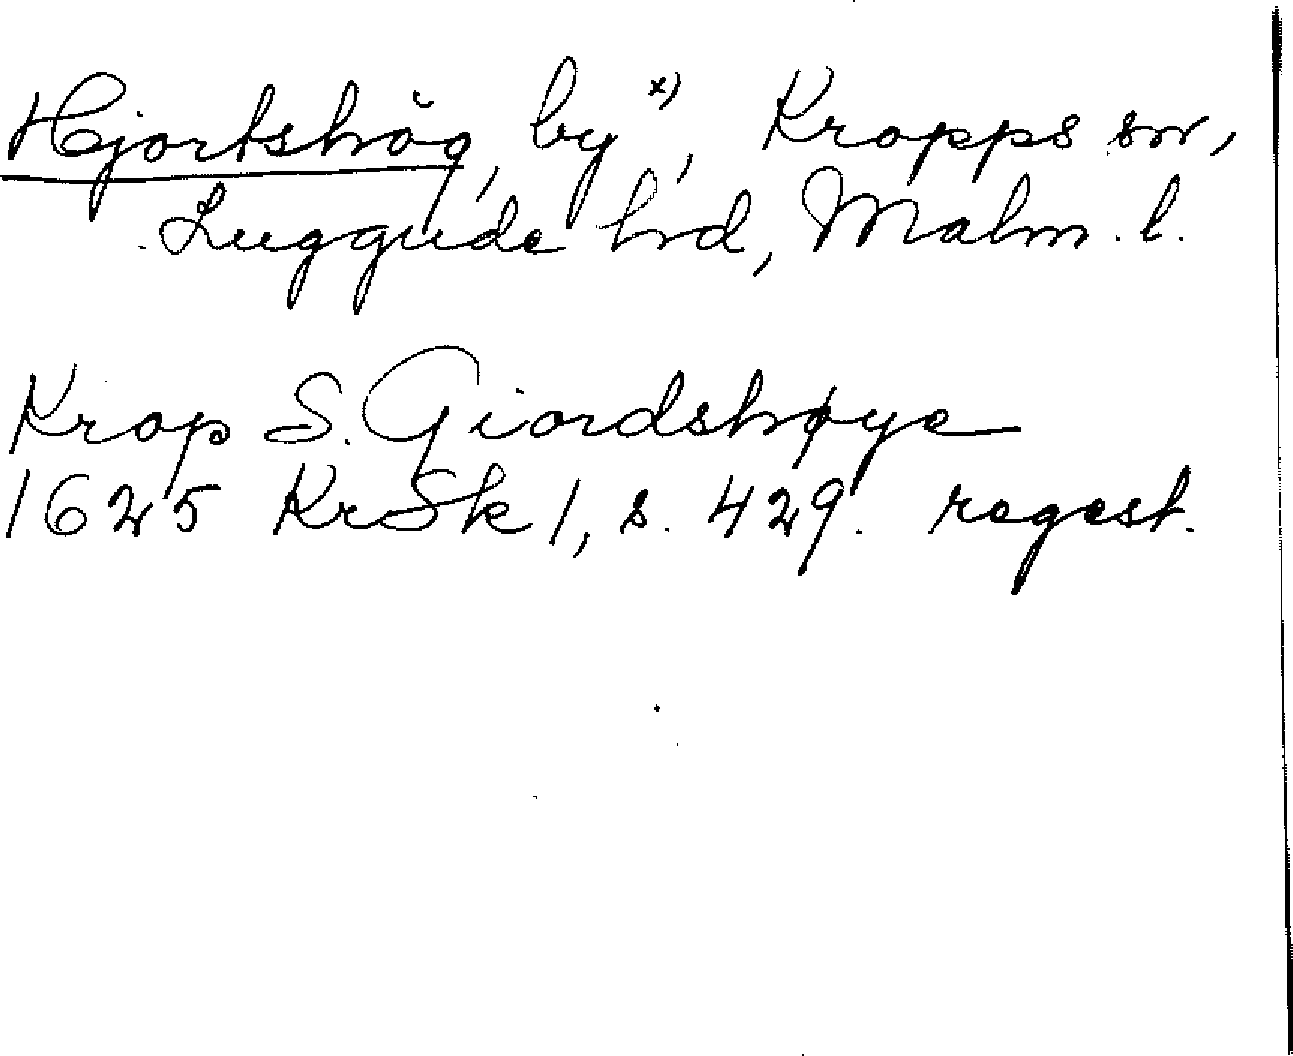 Hjortshög, by x), Kropps sn,
Luggude hd, Malm. l.
Krop S. Giordshøye
1625 KrSk 1, s. 429. regest.